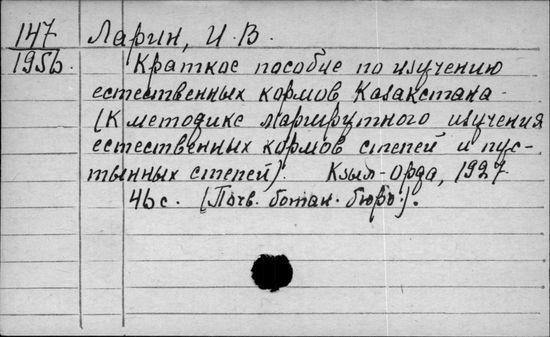 147 Ларин, И. В.
195б. Краткое пособие по изучению
естественных кормов Казакстана.
(К методике маршрутного изучения
естественных кормов степей и пус-
тынных степей). Кзыл-Орда, 1927.
46 с. (Почв. ботан. бюро.).